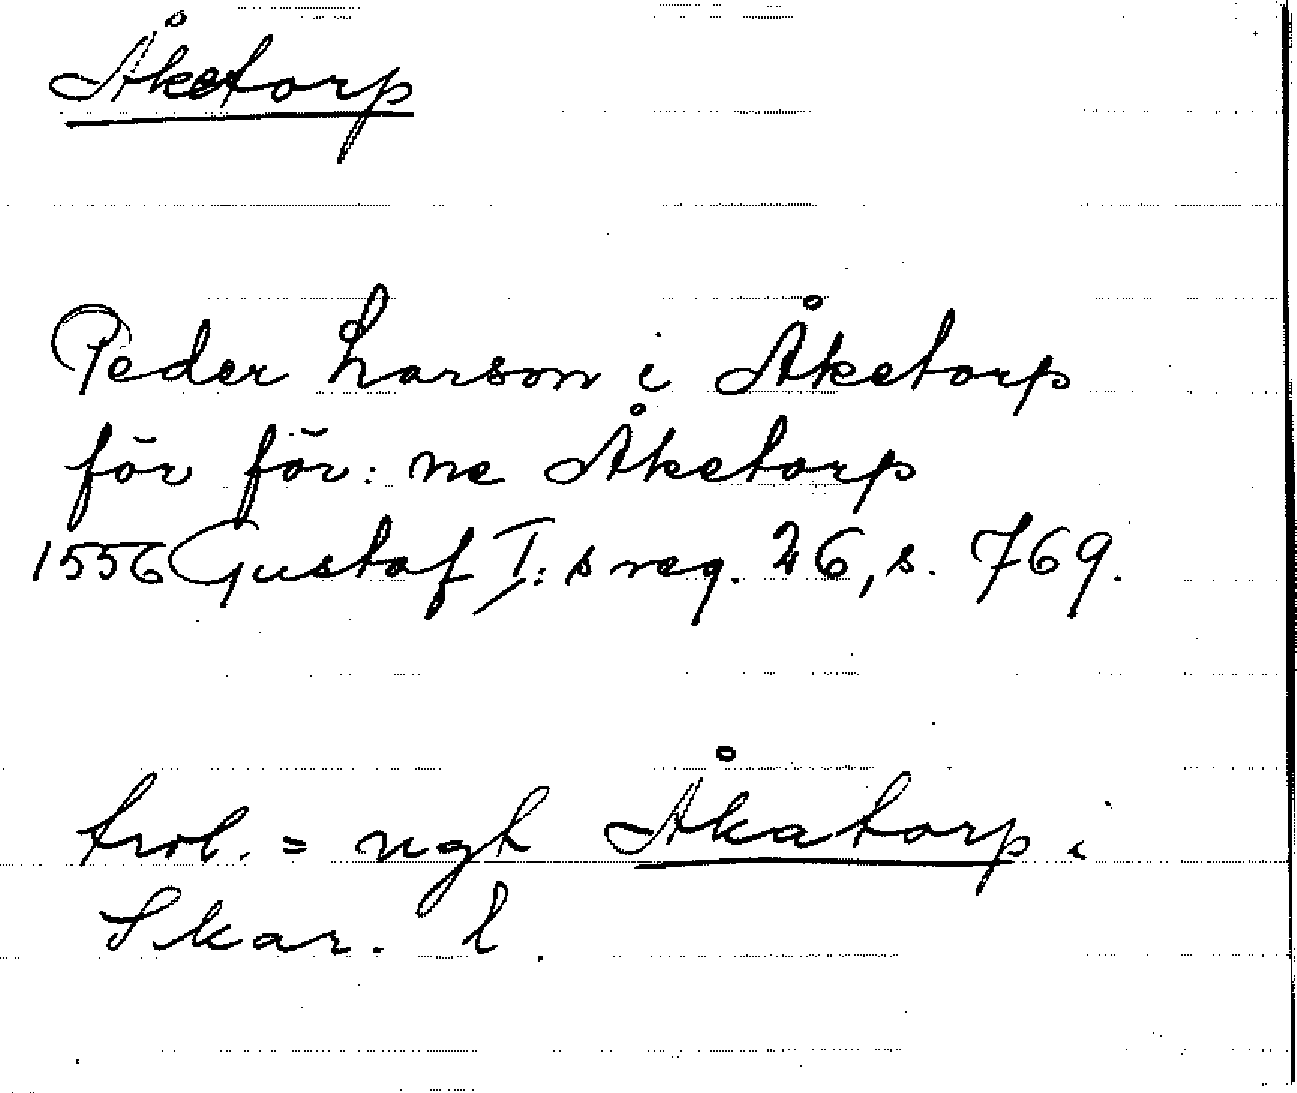 Åketorp
Peder Larson i Åketorp
för för: ne Åketorp
1556 Gustaf I: s reg. 26, s. 769.
trol. = ngt Åkatorp i
Skar. l.